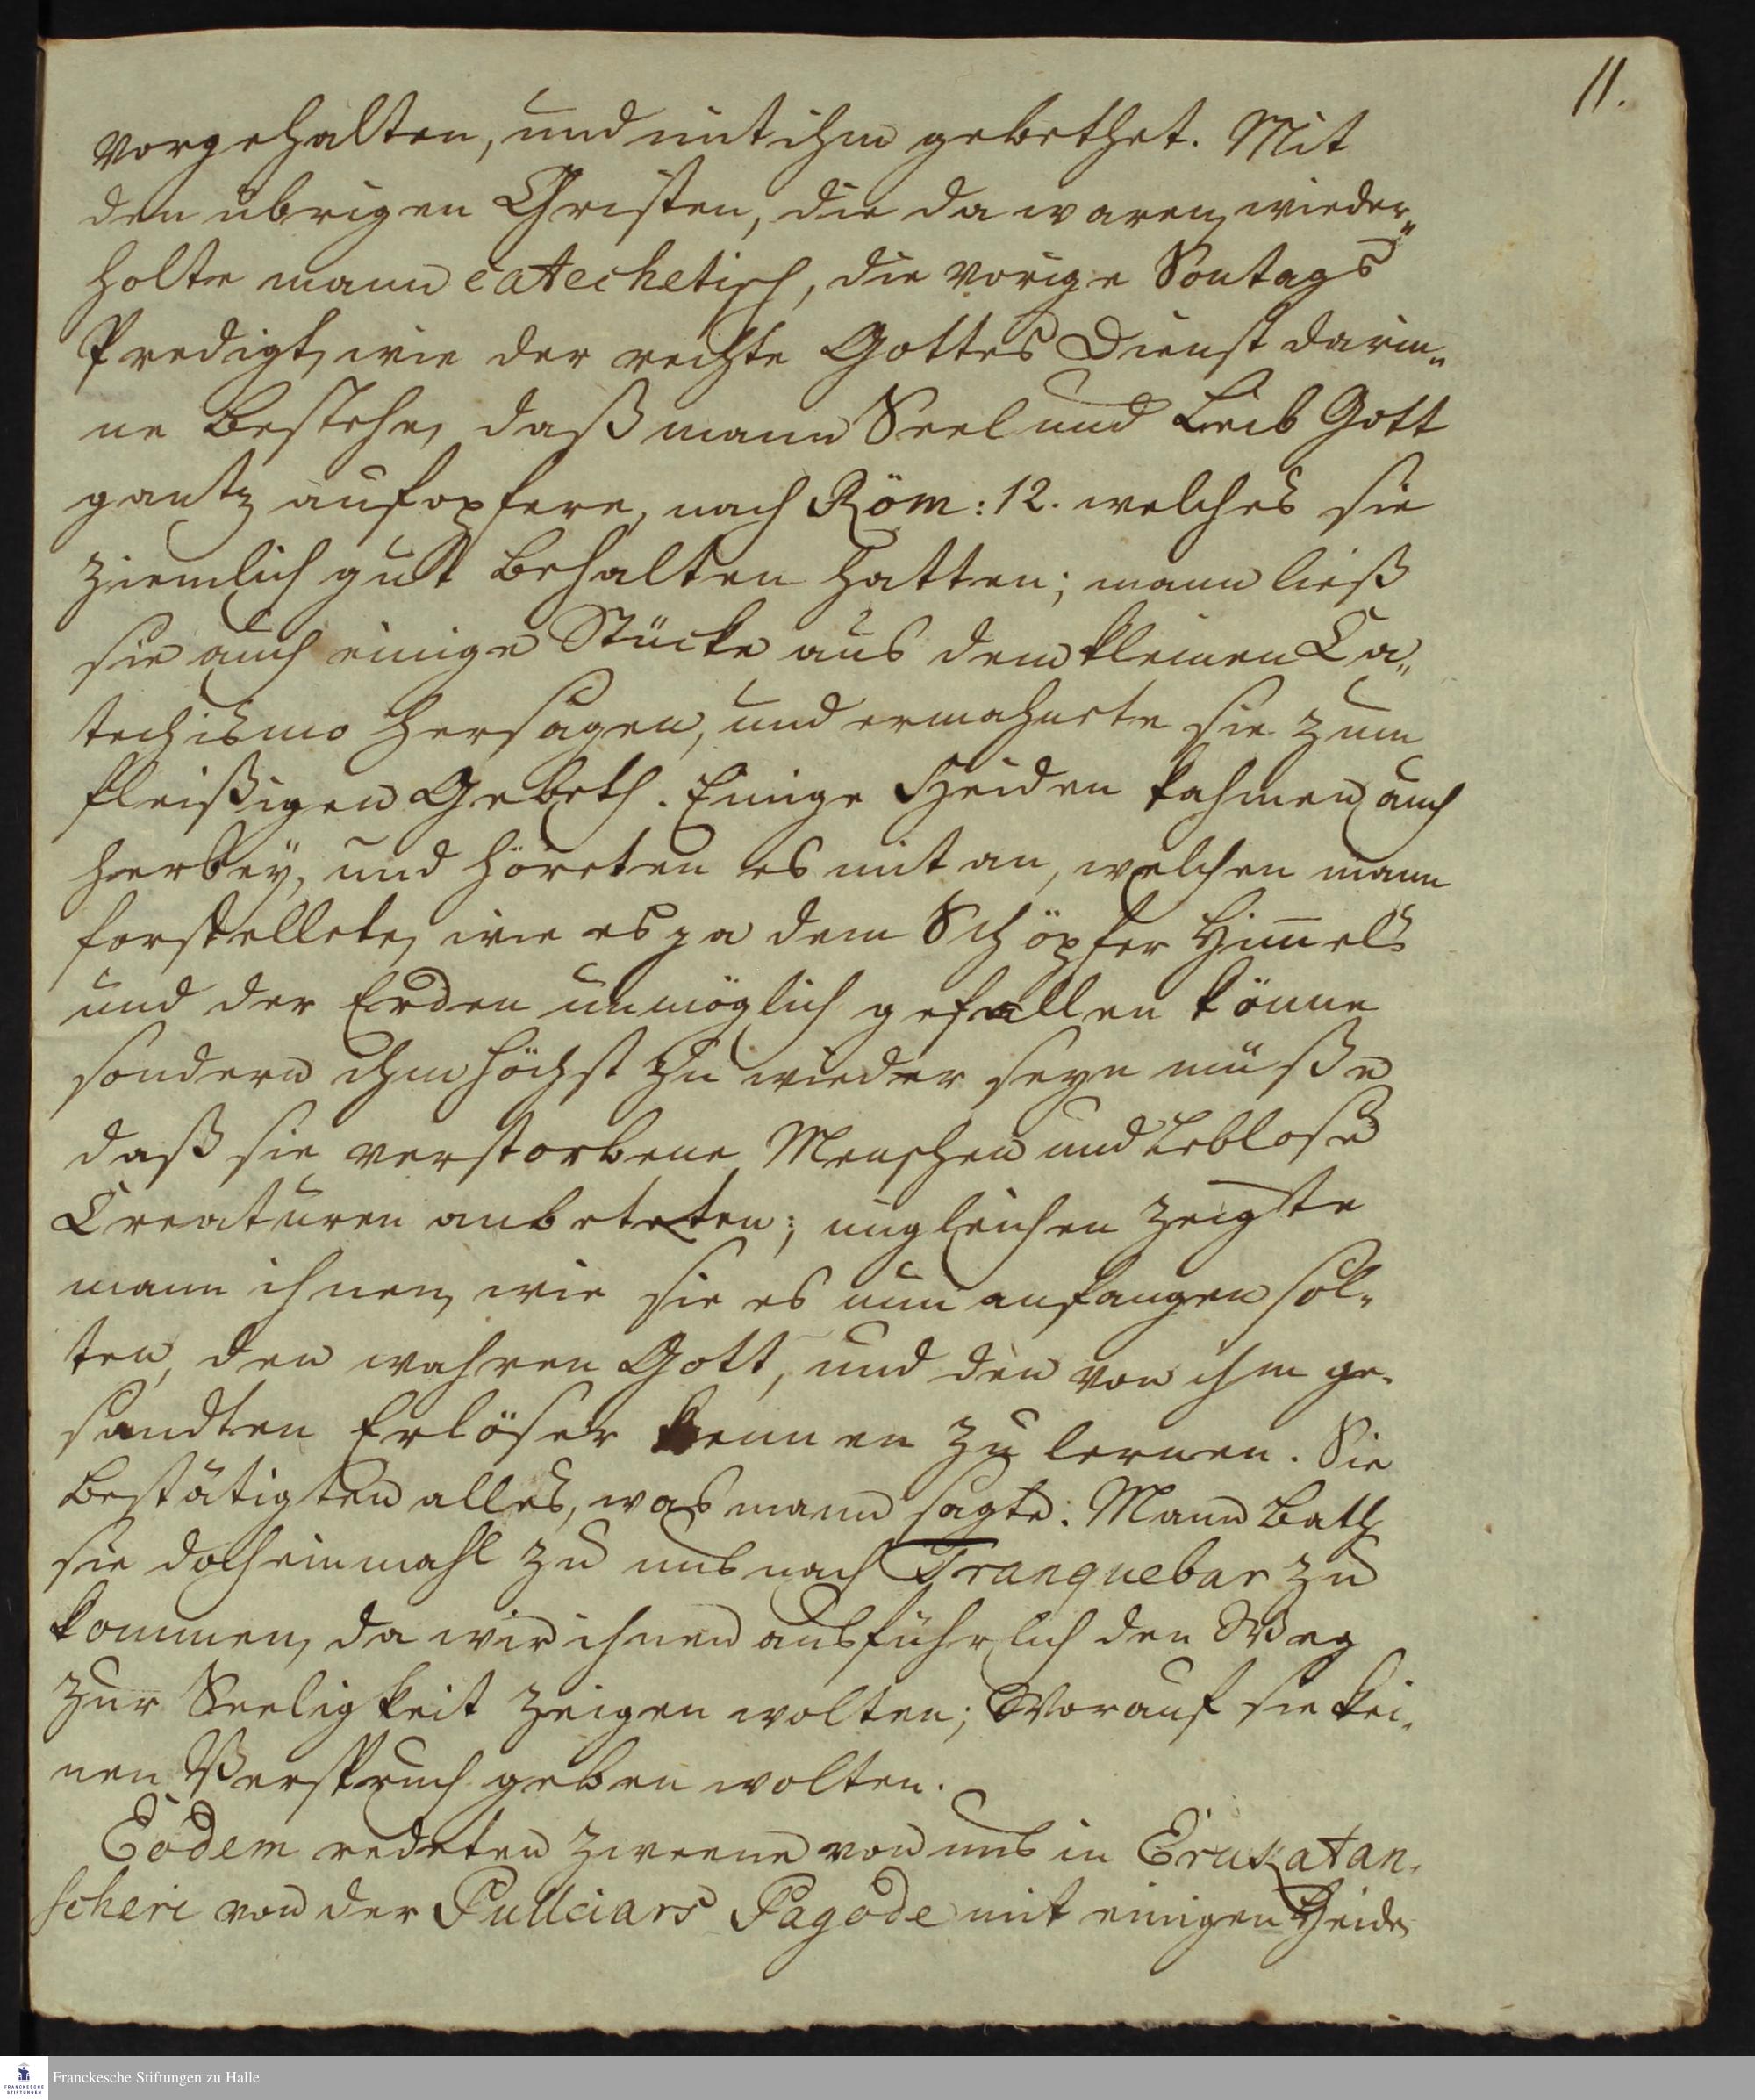 11.
vorgehalten, und mit ihm gebethet. Mit
den übrigen Christen, die da waren, wieder„
holte mann catechetisch, die vorige Sontags
Predigt, wie der rechte Gottes Dienst darin„
ne bestehe, daß mann Seel und Leib Gott
gantz aufopfere, nach Röm: 12. welches sie
ziemlich gut behalten hatten; mann ließ
sie auch einige Stücke aus dem kleinen Ca„
techismo hersagen, und ermahnete sie zum
fleißigen Gebeth. Einige Heiden kahmen auch
herbey, und höreten es mit an, welchen mann
forstellete, wie es ja dem Schöpfer Him̅els
und der Erden unmöglich gefallen könne
sondern ihm höchst zu wieder seyn müße
daß sie verstorbene Menschen und Leblose
Creaturen anbeteten; ingleichen zeigte
mann ihnen, wie sie es nun anfangen sol„
ten, den wahren Gott, und den von ihm ge„
sandten Erlöser kennen zu lernen. Sie
bestätigten alles, was mann sagte: Mann bath
sie doch einmahl zu uns nach Tranquebar zu
kommen, da wir ihnen ausführlich den Weg
zur Seeligkeit zeigen wolten; Worauf sie kei„
nen Verspruch geben wolten.
Eodem redeten zweene von uns in Erukatan„
scheri von der Pulleiars Pagode mit einigen Heiden
Franckesche Stiftungen zu Halle